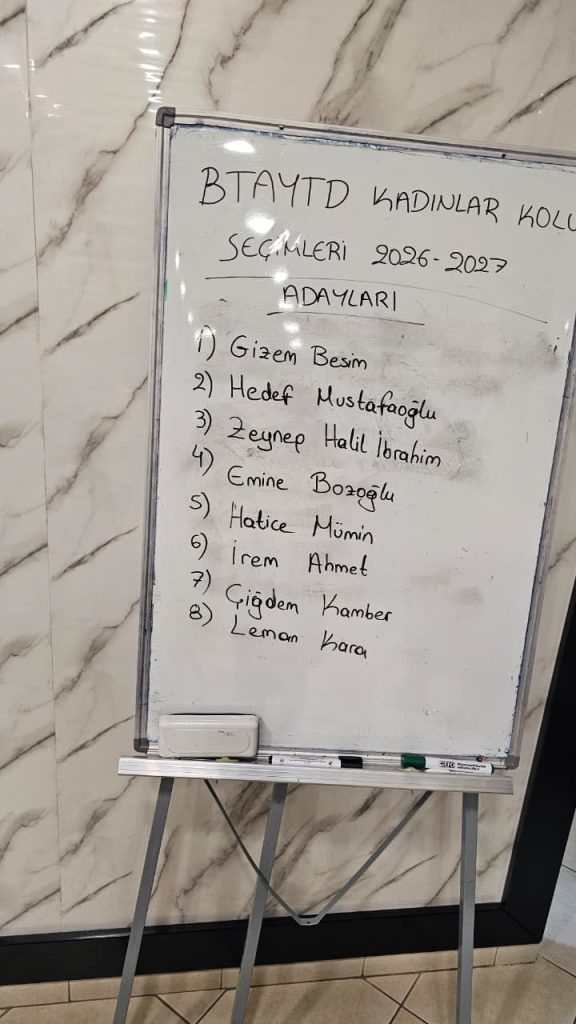 BTAYTD KADINLAR KOLU
SEÇİMLERİ 2026-2027
ADAYLARI
1) Gizem Besim
2) Hedef Mustafaoğlu
3) Zeynep Halil İbrahim
4) Emine Bozoğlu
5) Hatice Mümin
6) İrem Ahmet
7) Çiğdem Kamber
8) Leman Kara